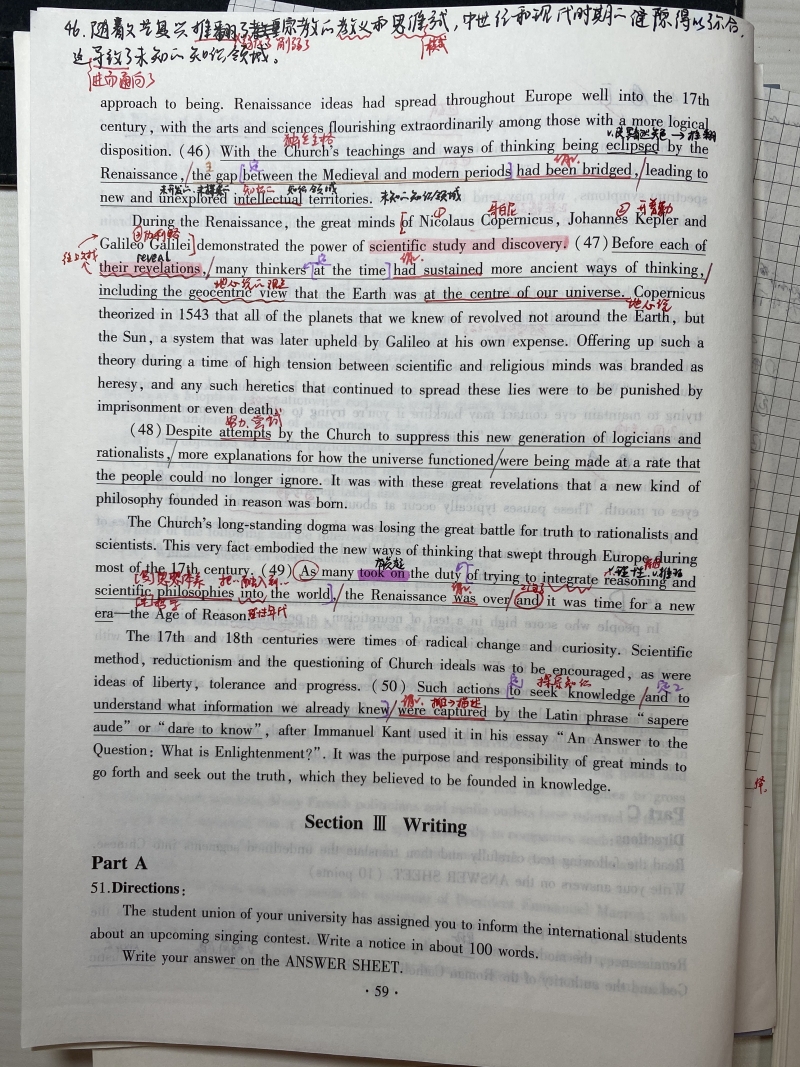 46. 随着文艺复兴推翻了宗教的教义和思维模式, 中世纪和现代时期的
这导致了未知的知识领域。
削弱了
模式
进而通向了
approach to being. Renaissance ideas had spread throughout Europe well into the 17th
century, with the arts and sciences flourishing extraordinarily among those with a more logical
disposition. (46) With the Church's teachings and ways of thinking being eclipsed by the
Renaissance, the gap between the Medieval and modern periods had been bridged, leading to
new and unexplored intellectual territories.
未知的知识领域
During the Renaissance, the great minds of Nicolaus Copernicus, Johannes Kepler and
哥白尼
② 开普勒
Galileo Galilei demonstrated the power of scientific study and discovery. (47) Before each of
reveal
their revelations, many thinkers at the time had sustained more ancient ways of thinking,
including the geocentric view that the Earth was at the centre of our universe. Copernicus
地心说
theorized in 1543 that all of the planets that we knew of revolved not around the Earth, but
the Sun, a system that was later upheld by Galileo at his own expense. Offering up such a
theory during a time of high tension between scientific and religious minds was branded as
heresy, and any such heretics that continued to spread these lies were to be punished by
imprisonment or even death.
努力. 尝试
(48) Despite attempts by the Church to suppress this new generation of logicians and
rationalists, more explanations for how the universe functioned were being made at a rate that
the people could no longer ignore. It was with these great revelations that a new kind of
philosophy founded in reason was born.
The Church's long-standing dogma was losing the great battle for truth to rationalists and
scientists. This very fact embodied the new ways of thinking that swept through Europe during
most of the 17th century. (49) As many took on the duty of trying to integrate reasoning and
scientific philosophies into the world, the Renaissance was over and it was time for a new
era—the Age of Reason.
理性年代
The 17th and 18th centuries were times of radical change and curiosity. Scientific
method, reductionism and the questioning of Church ideals was to be encouraged, as were
ideas of liberty, tolerance and progress. (50) Such actions to seek knowledge and to
探求知识
understand what information we already knew were captured by the Latin phrase "sapere
aude" or "dare to know", after Immanuel Kant used it in his essay "An Answer to the
Question: What is Enlightenment?". It was the purpose and responsibility of great minds to
go forth and seek out the truth, which they believed to be founded in knowledge.
Section Ⅲ Writing
Part A
51.Directions:
The student union of your university has assigned you to inform the international students
about an upcoming singing contest. Write a notice in about 100 words.
Write your answer on the ANSWER SHEET.
· 59 ·